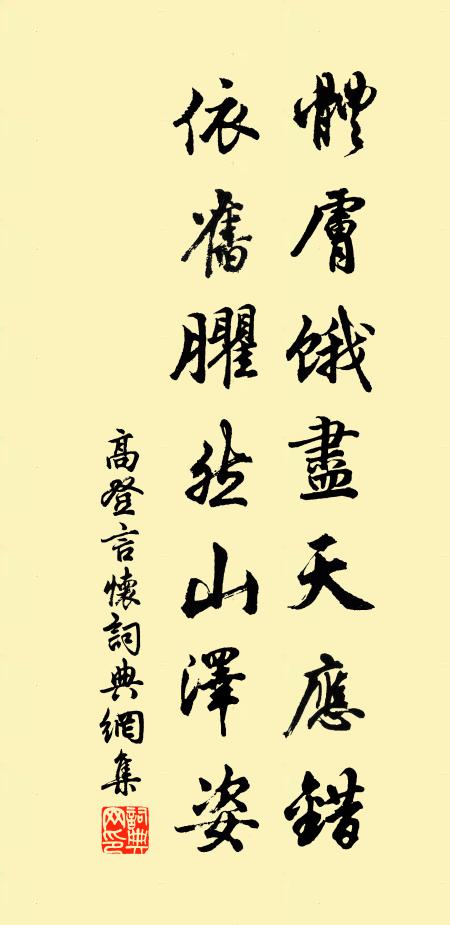 體膚餓盡天應錯
依舊臞然山澤姿
高登言懷詞典網集
詞典網印